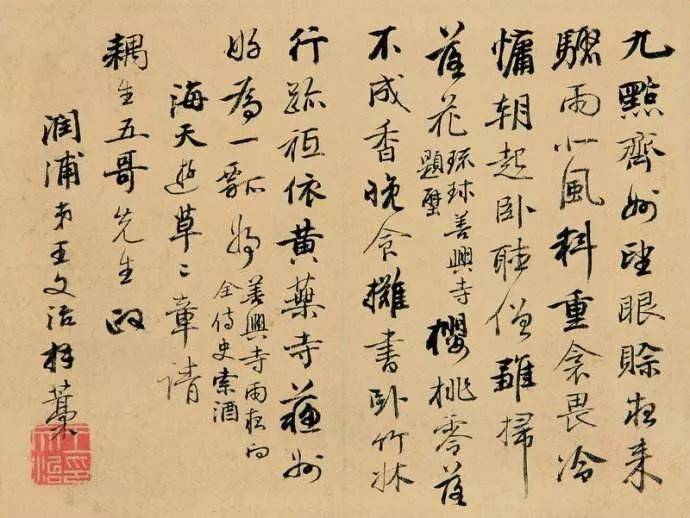 九點齊州望眼賒夜來
驟雨小風斜重衾畏冷
慵朝起臥聽僧雛掃
落花 琉球善興寺題壁 櫻桃零落
不成香晚食攤書卧竹牀
行跡祗依黃蘗寺蘇州
好為一瓢 善興寺雨夜向全侍史索酒
海天遊草二章請
耦生五哥先生政
潤浦弟王文治拜藁